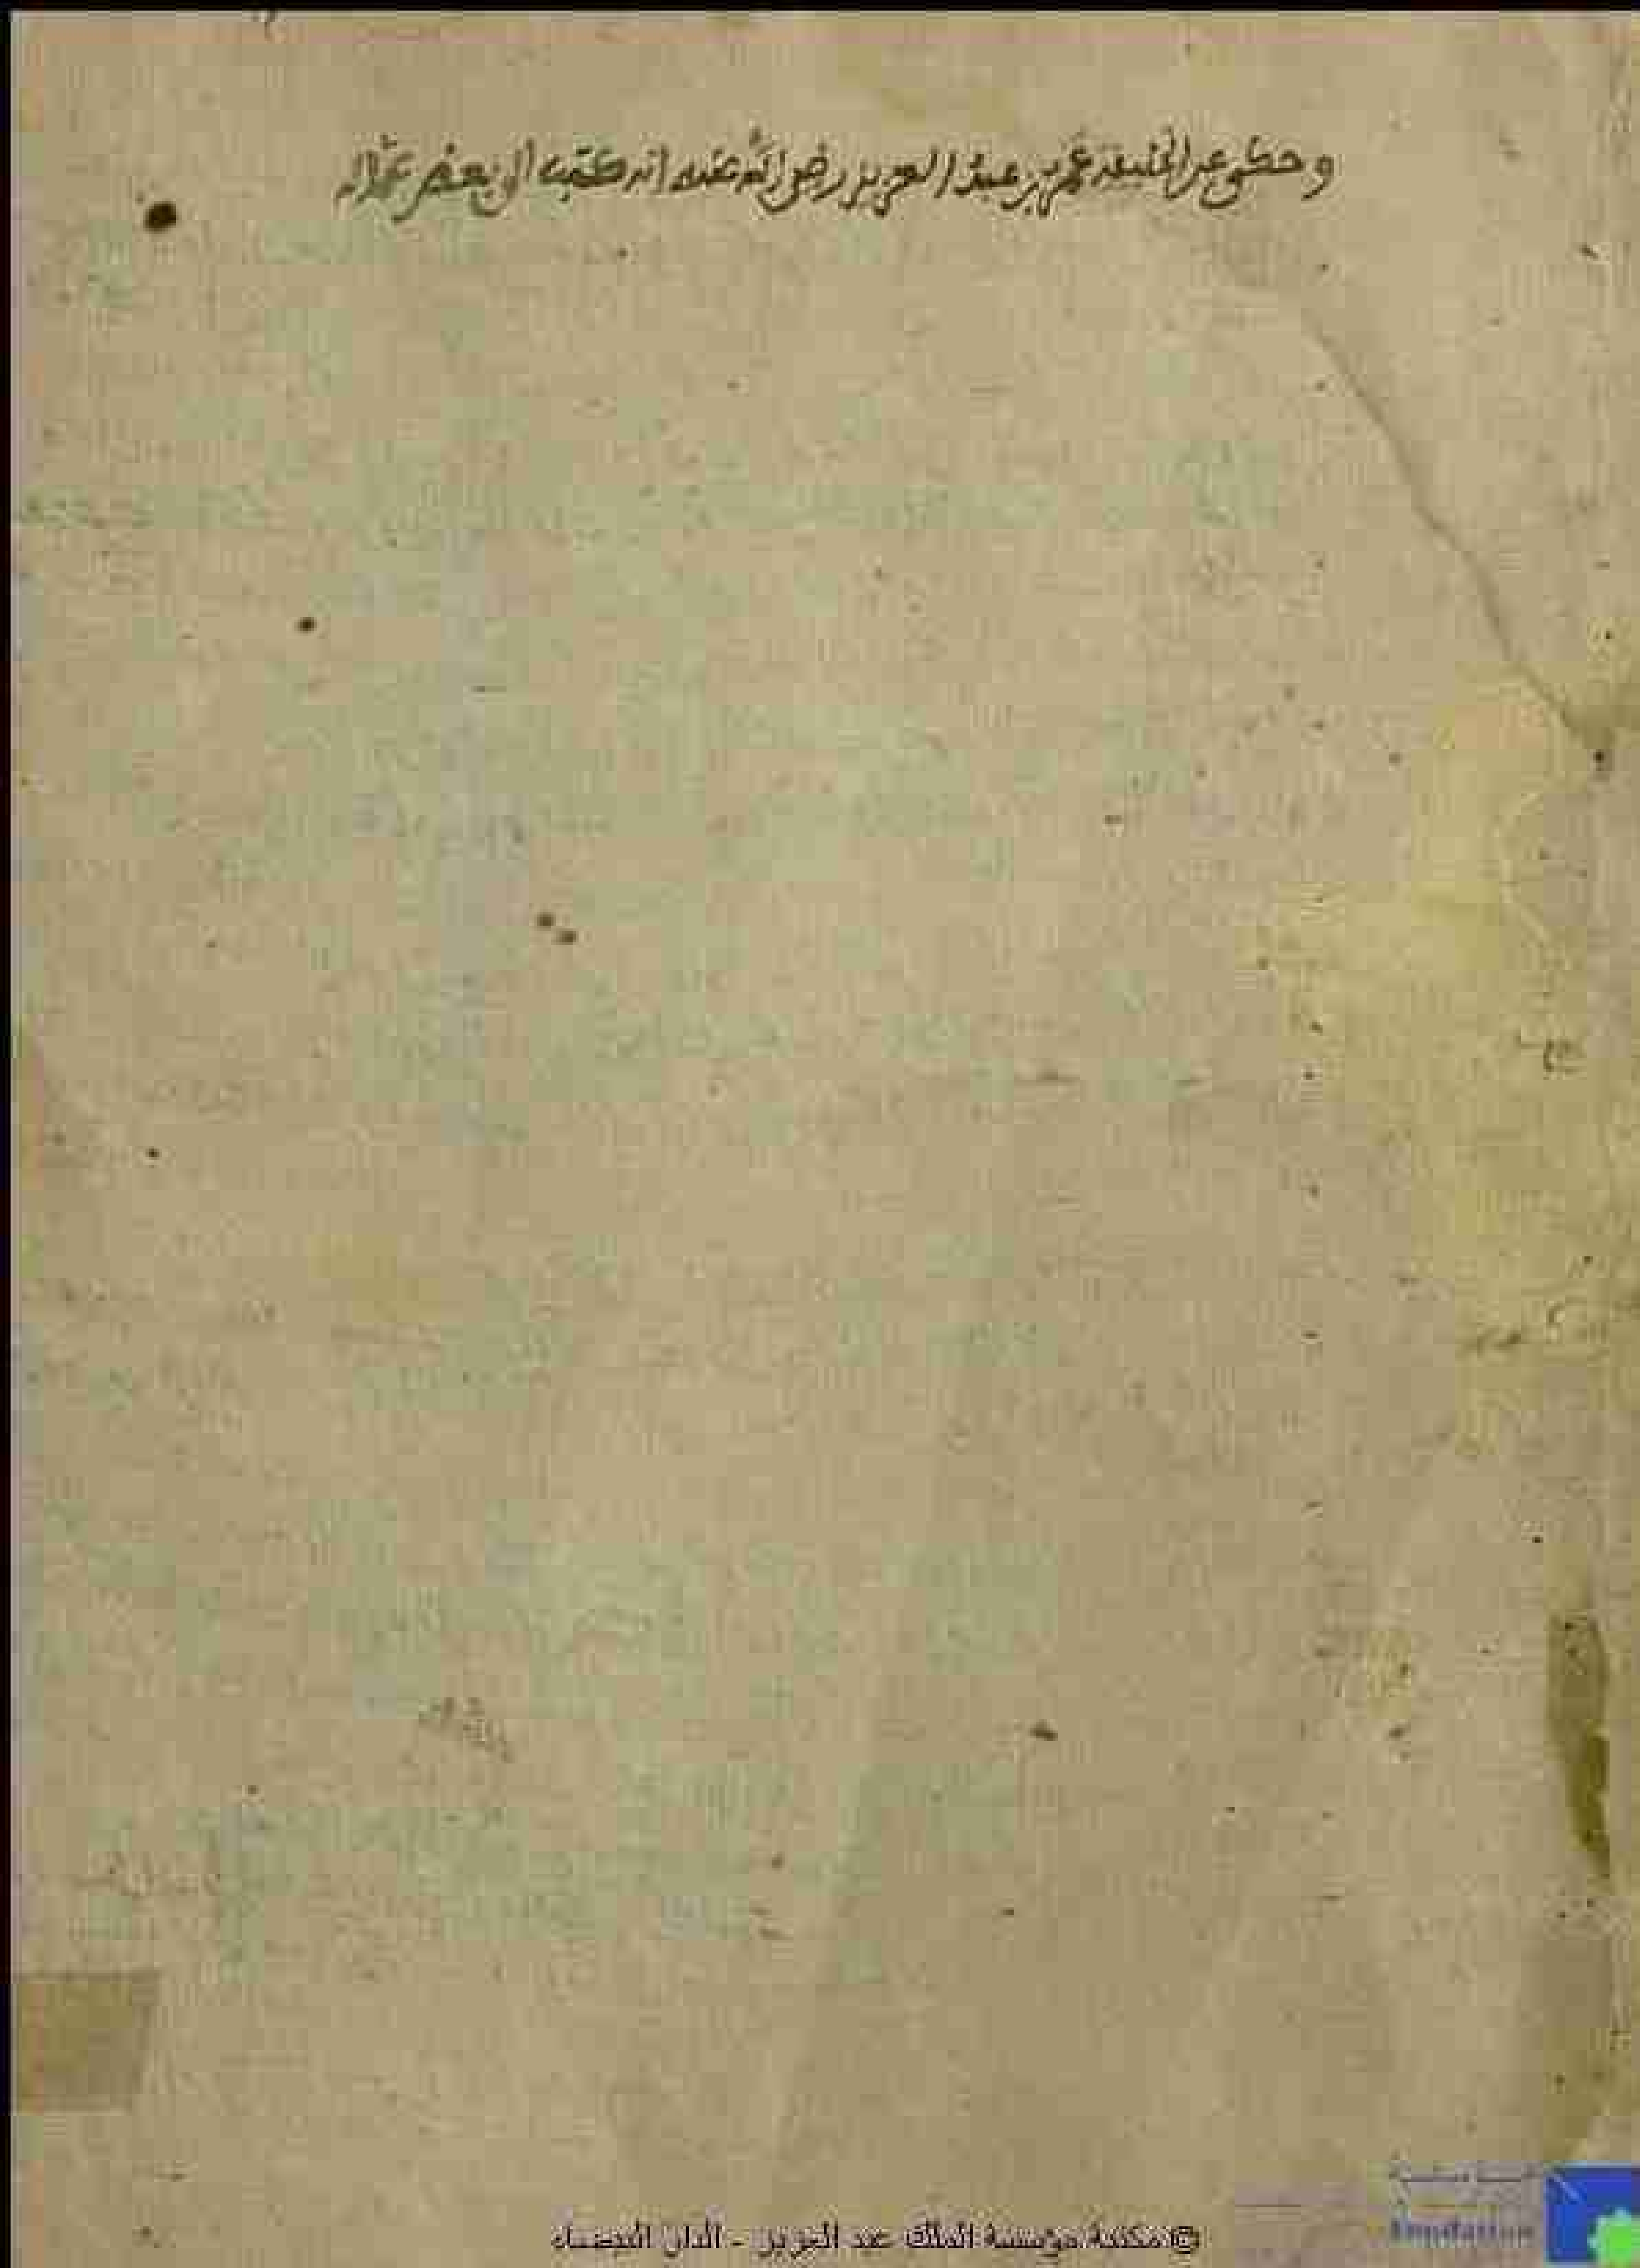 وحكى عن الخليفة عمر بن عبد العزيز رضي الله عنه انه كتب الى بعض عماله
© مكتبة مؤسسة الملك عبد العزيز - الدار البيضاء
Fondation